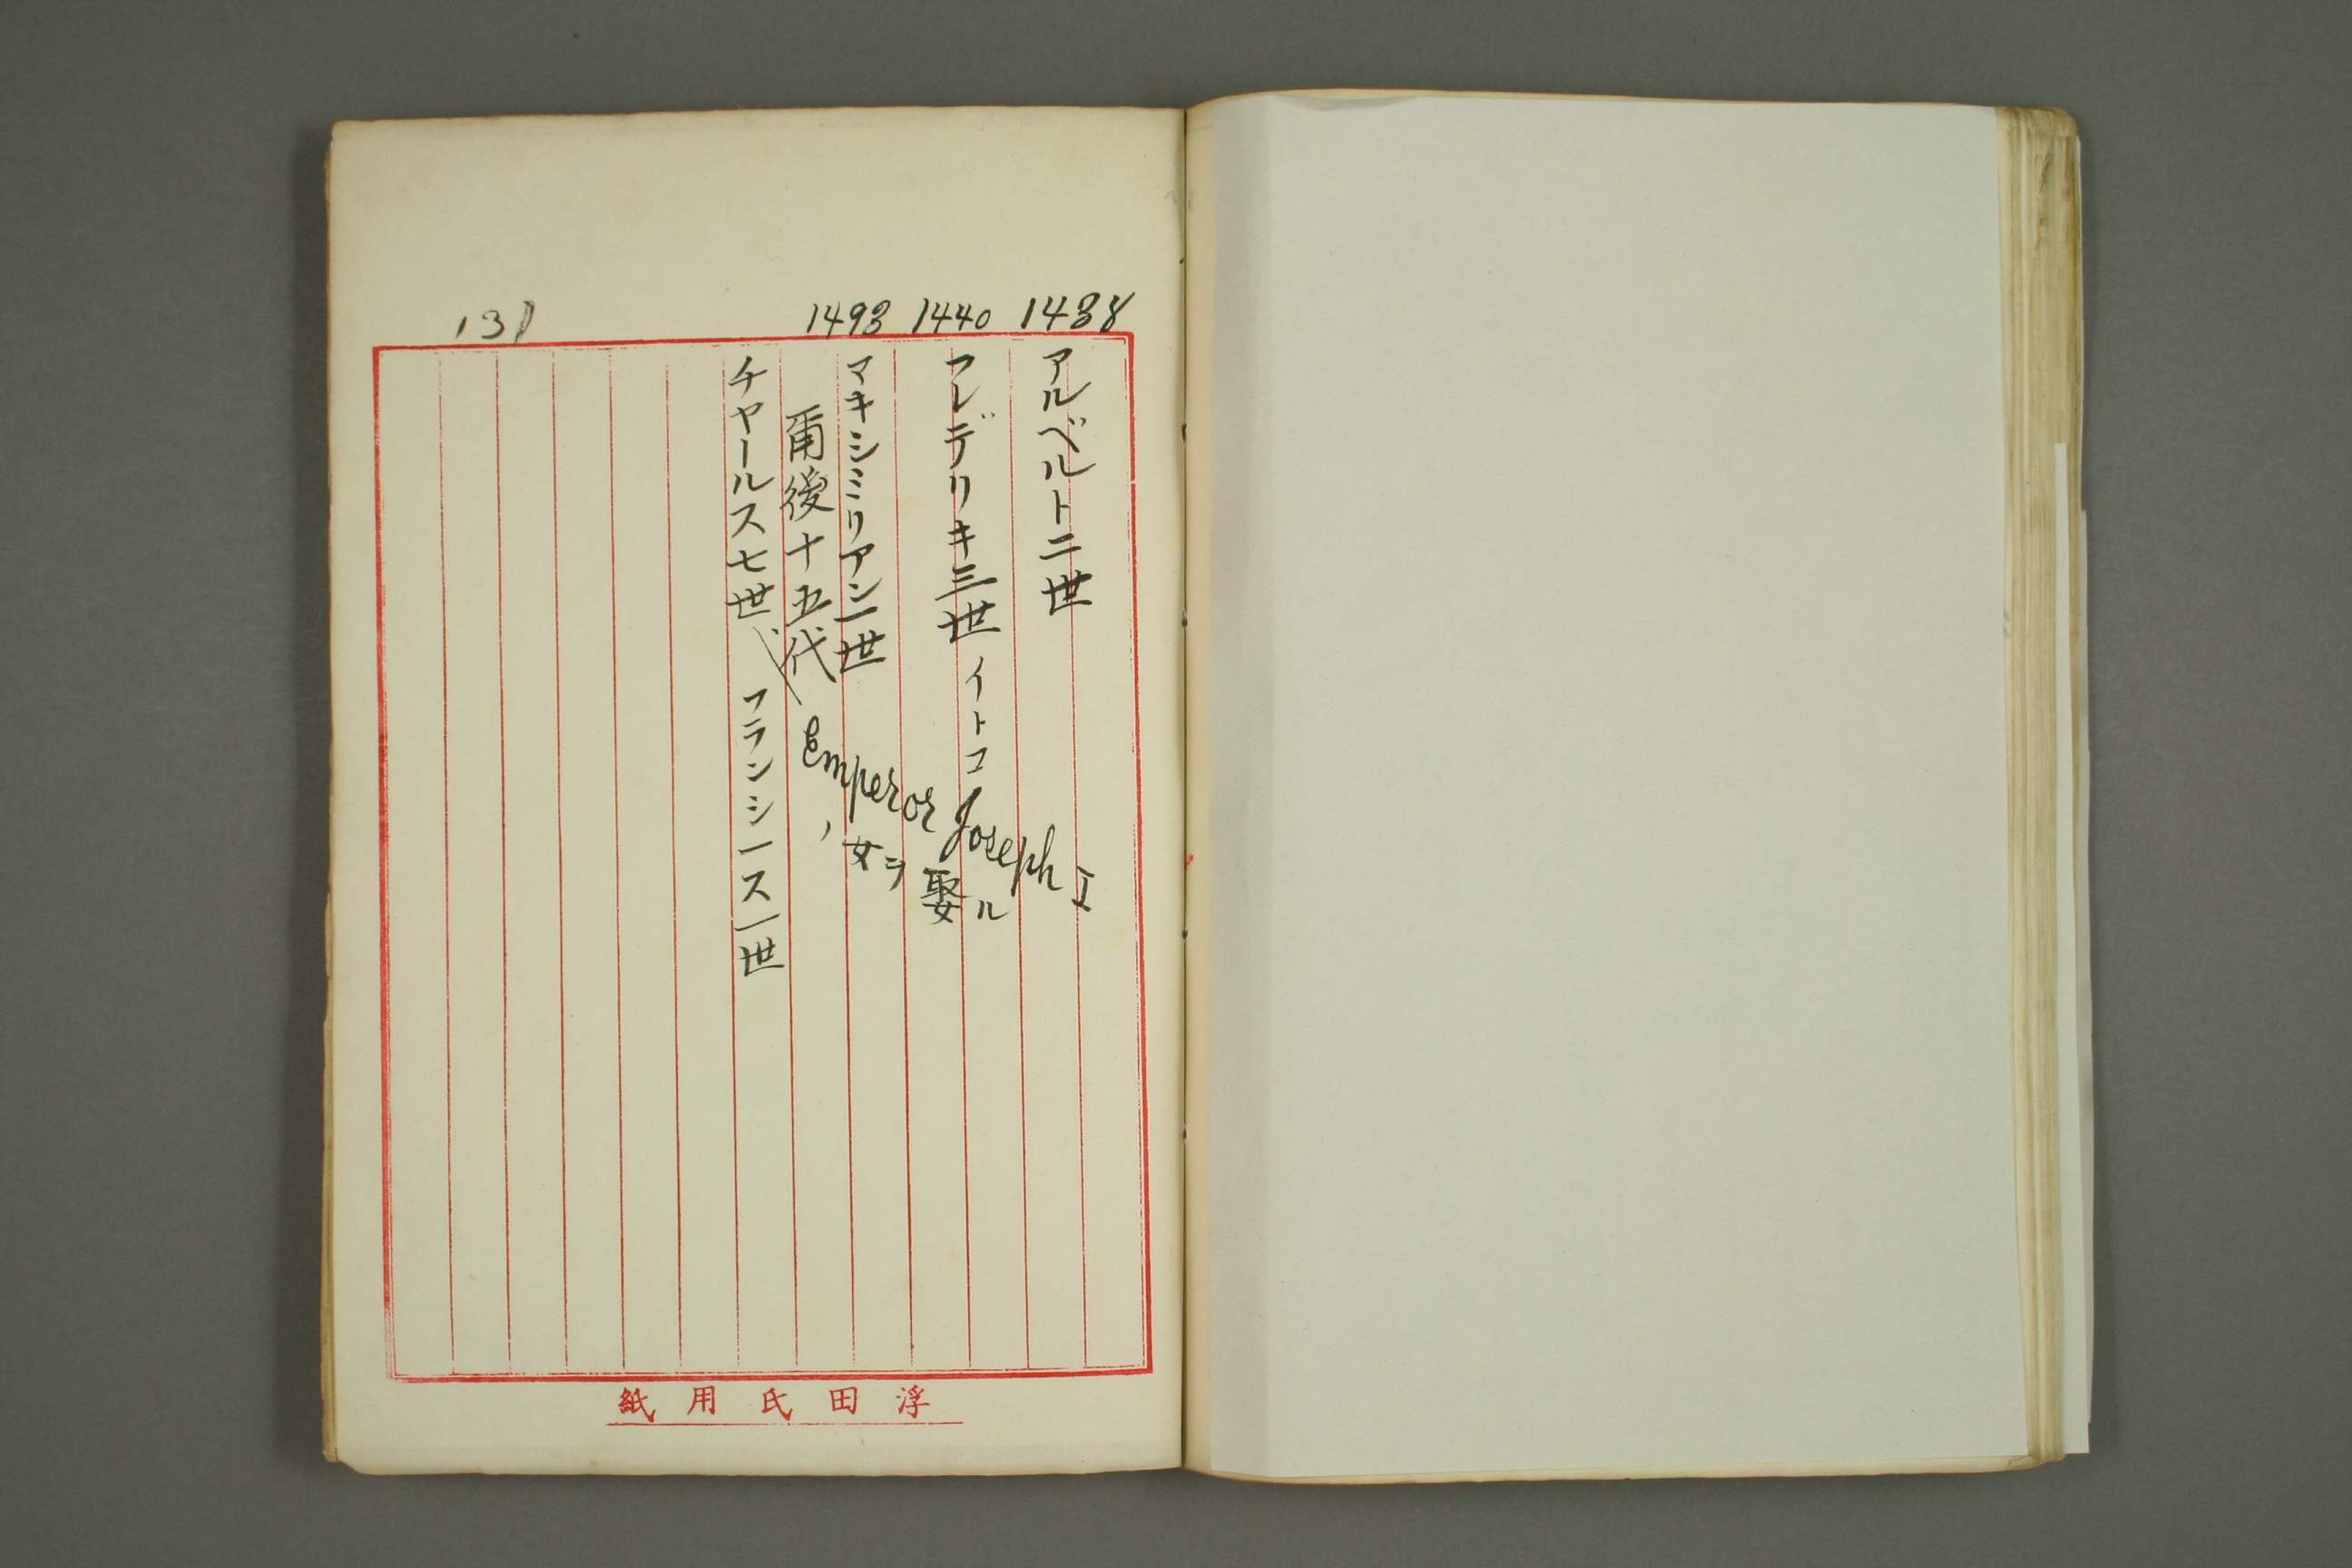 1438
アルベルト二世
1440
フレデリキ三世 イトコ
1493
マキシミリアン一世
爾後十五代
チヤールス七世 フランシース一世
Emperor Joseph I
ノ女ヲ娶ル
131
浮田氏用紙